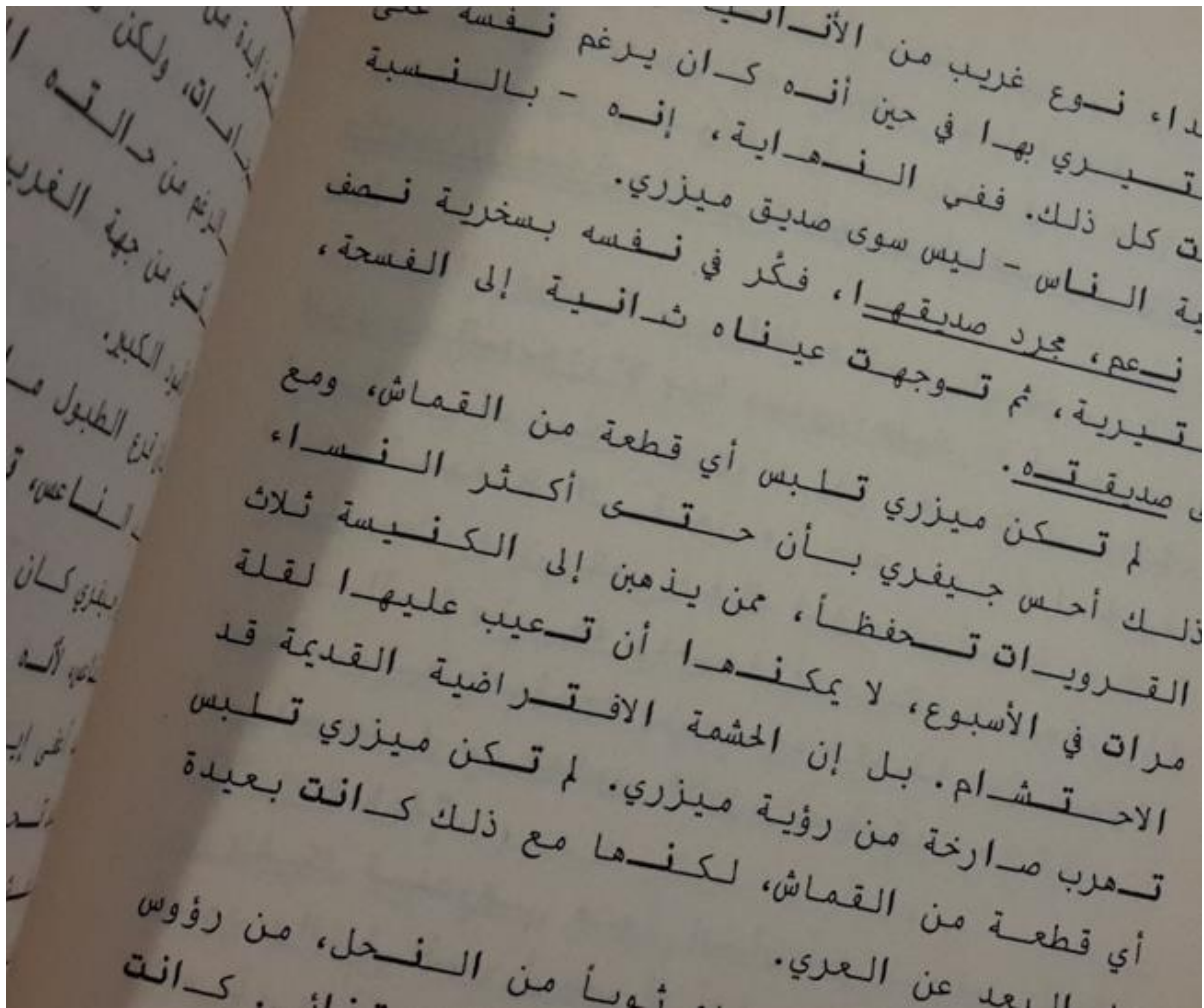 نوع غريب من الأنانية
بها في حين أنه كان يرغم نفسه على
كل ذلك. ففي النهاية، إنه - بالنسبة
الناس - ليس سوى صديق ميزري.
نعم، مجرد صديقها، فكَّر في نفسه بسخرية نصف
ثم توجهت عيناه ثانية إلى الفسحة،
صديقته.
لم تكن ميزري تلبس أي قطعة من القماش، ومع
ذلك أحس جيفري بأن حتى أكثر النساء
القرويات تحفظاً، ممن يذهبن إلى الكنيسة ثلاث
مرات في الأسبوع، لا يمكنها أن تعيب عليها لقلة
الاحتشام. بل إن الحشمة الافتراضية القديمة قد
تهرب صارخة من رؤية ميزري. لم تكن ميزري تلبس
أي قطعة من القماش، لكنها مع ذلك كانت بعيدة
البعد عن العري.
ثوباً من النحل، من رؤوس
كانت
ولكن
الرغم من حالته
من جهة الغرب
الكبير.
قرع الطبول
كان